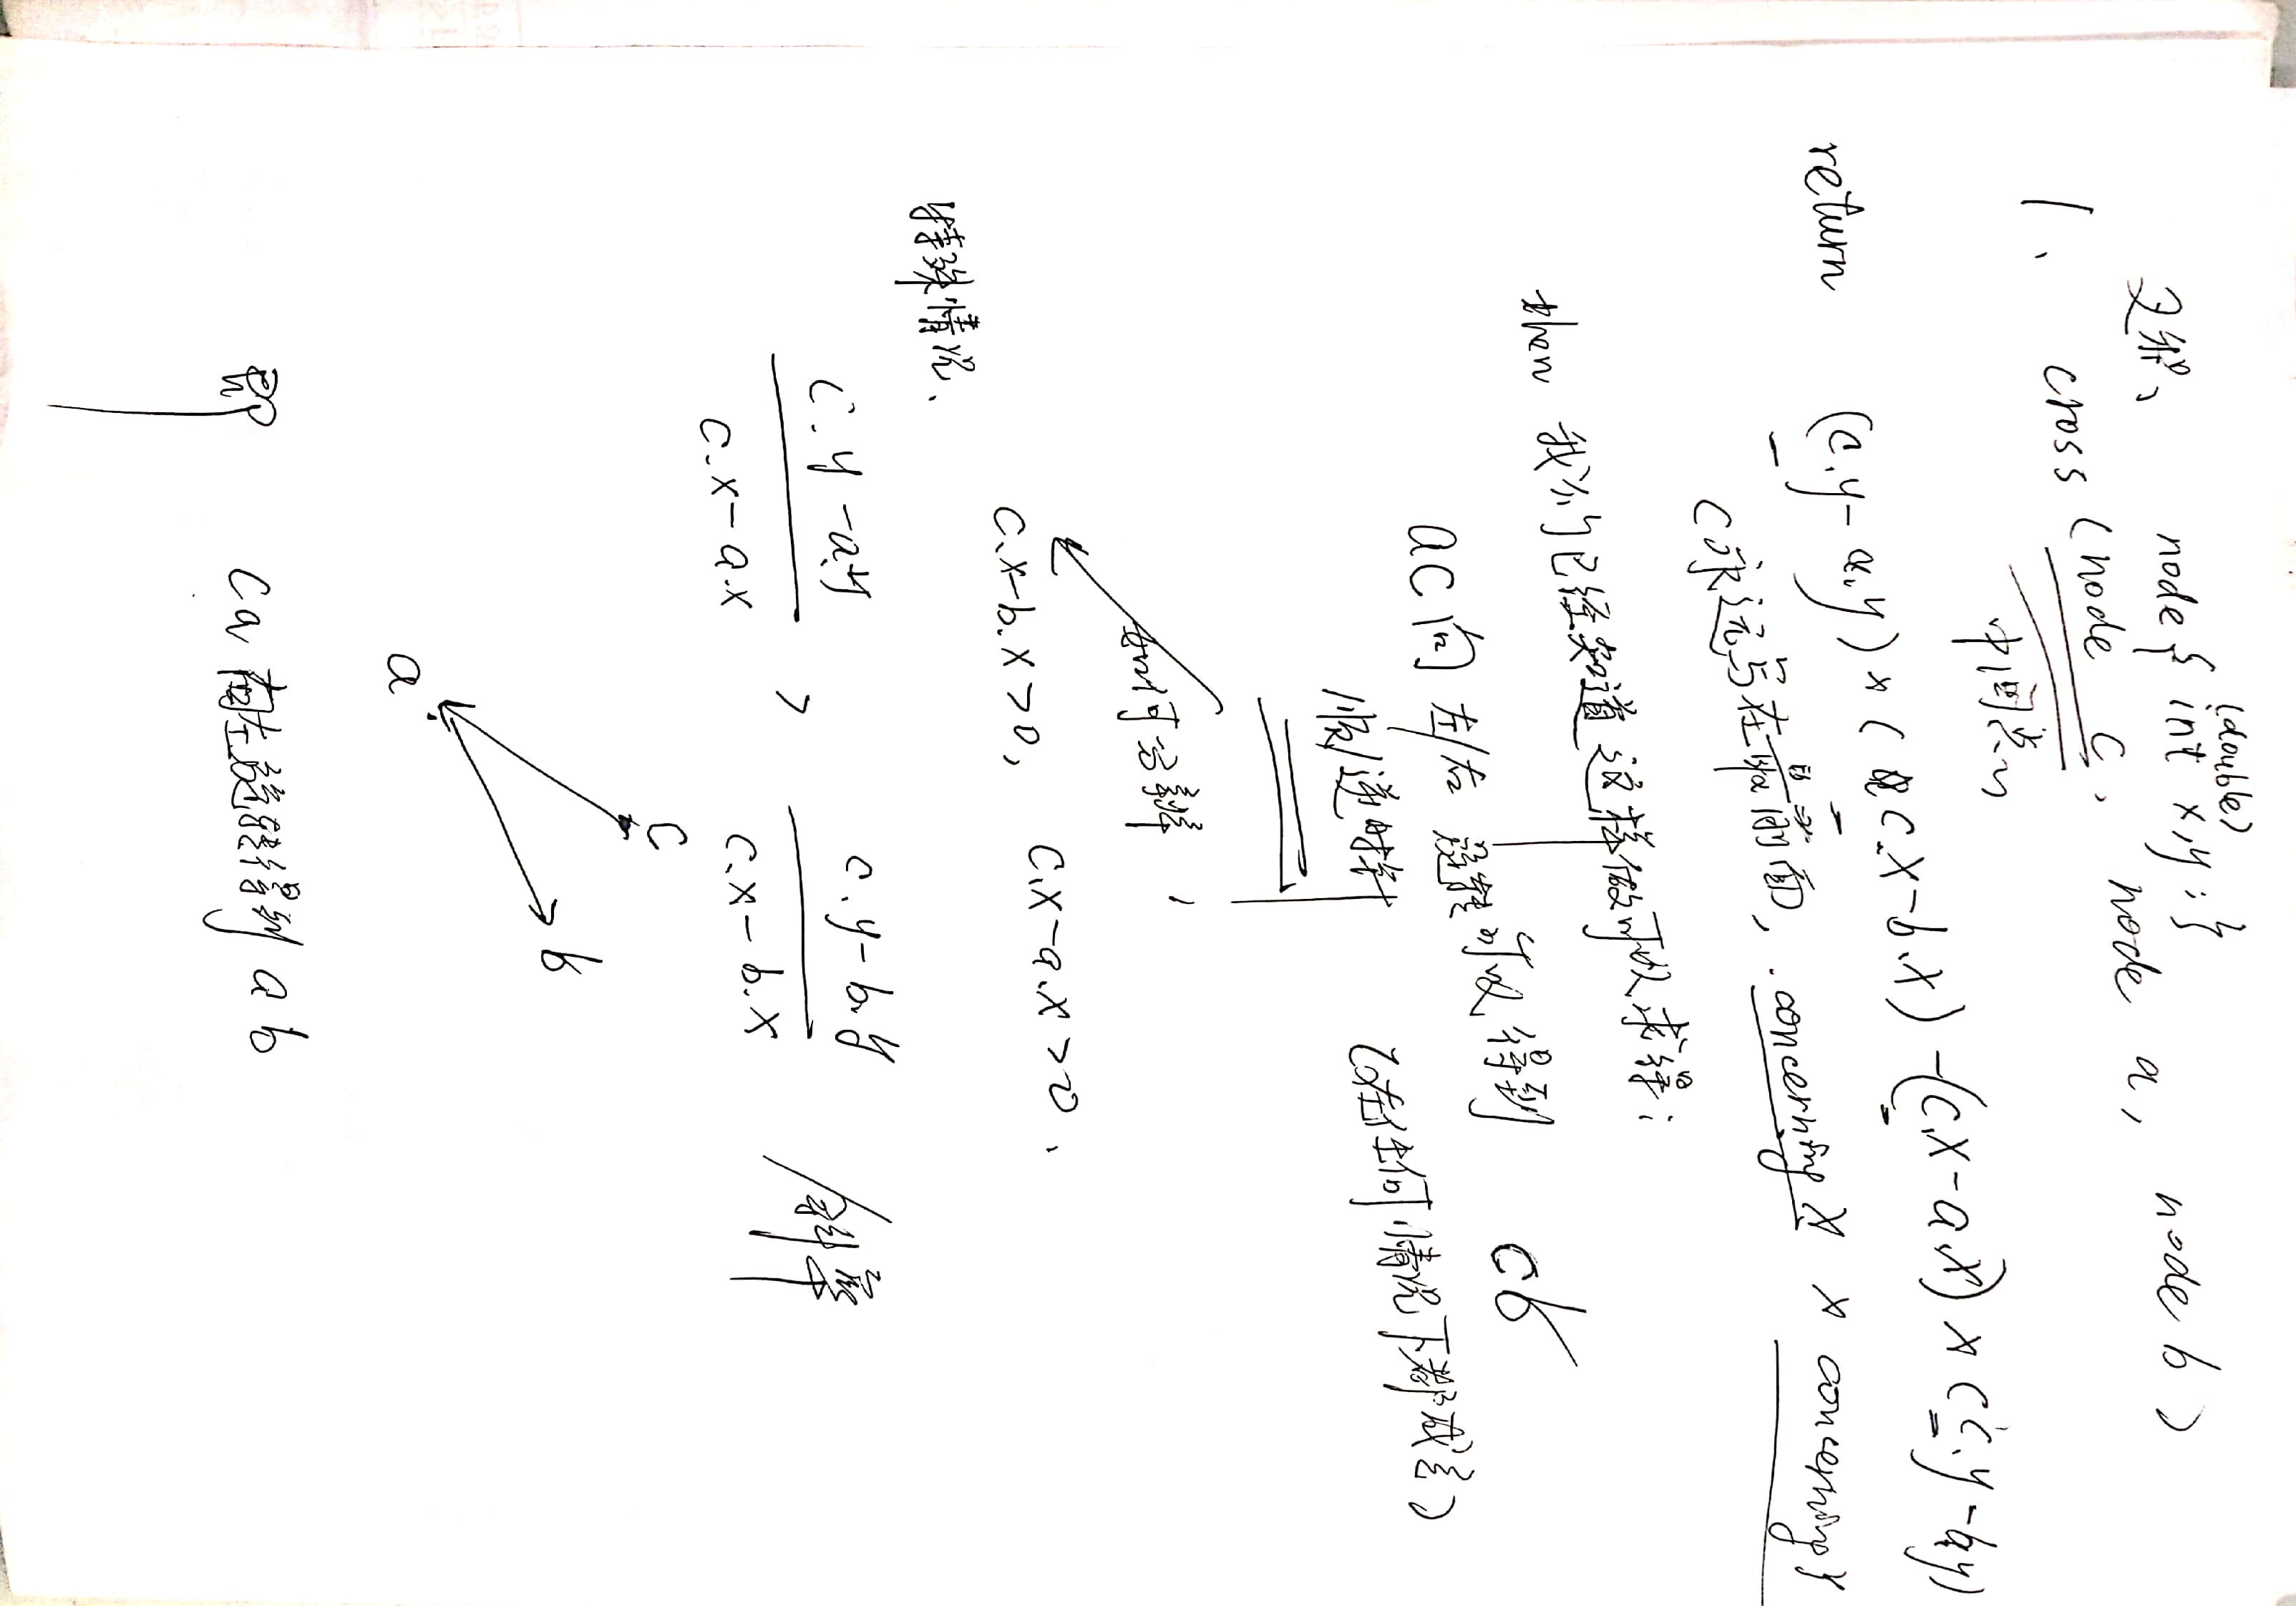 叉积、 node { int x,y; }
(double)
1、 cross (node c, node a, node b)
中间点
return (c.y-a.y)×(c.x-b.x)-(c.x-a.x)×(c.y-b.y)
c永远写在最前面, concerning x × concerning y
then 我们已经知道这样做可以求得:
ac向左/右旋转可以得到 cb
顺/逆时针 (在任何情况下都成立)
如何分辨
c.x-b.x>0, c.x-a.x>0、
特殊情况、
c.y-a.y / c.x-a.x > c.y-b.y / c.x-b.x 斜率
c
b
a
即 ca向左旋转得到ab